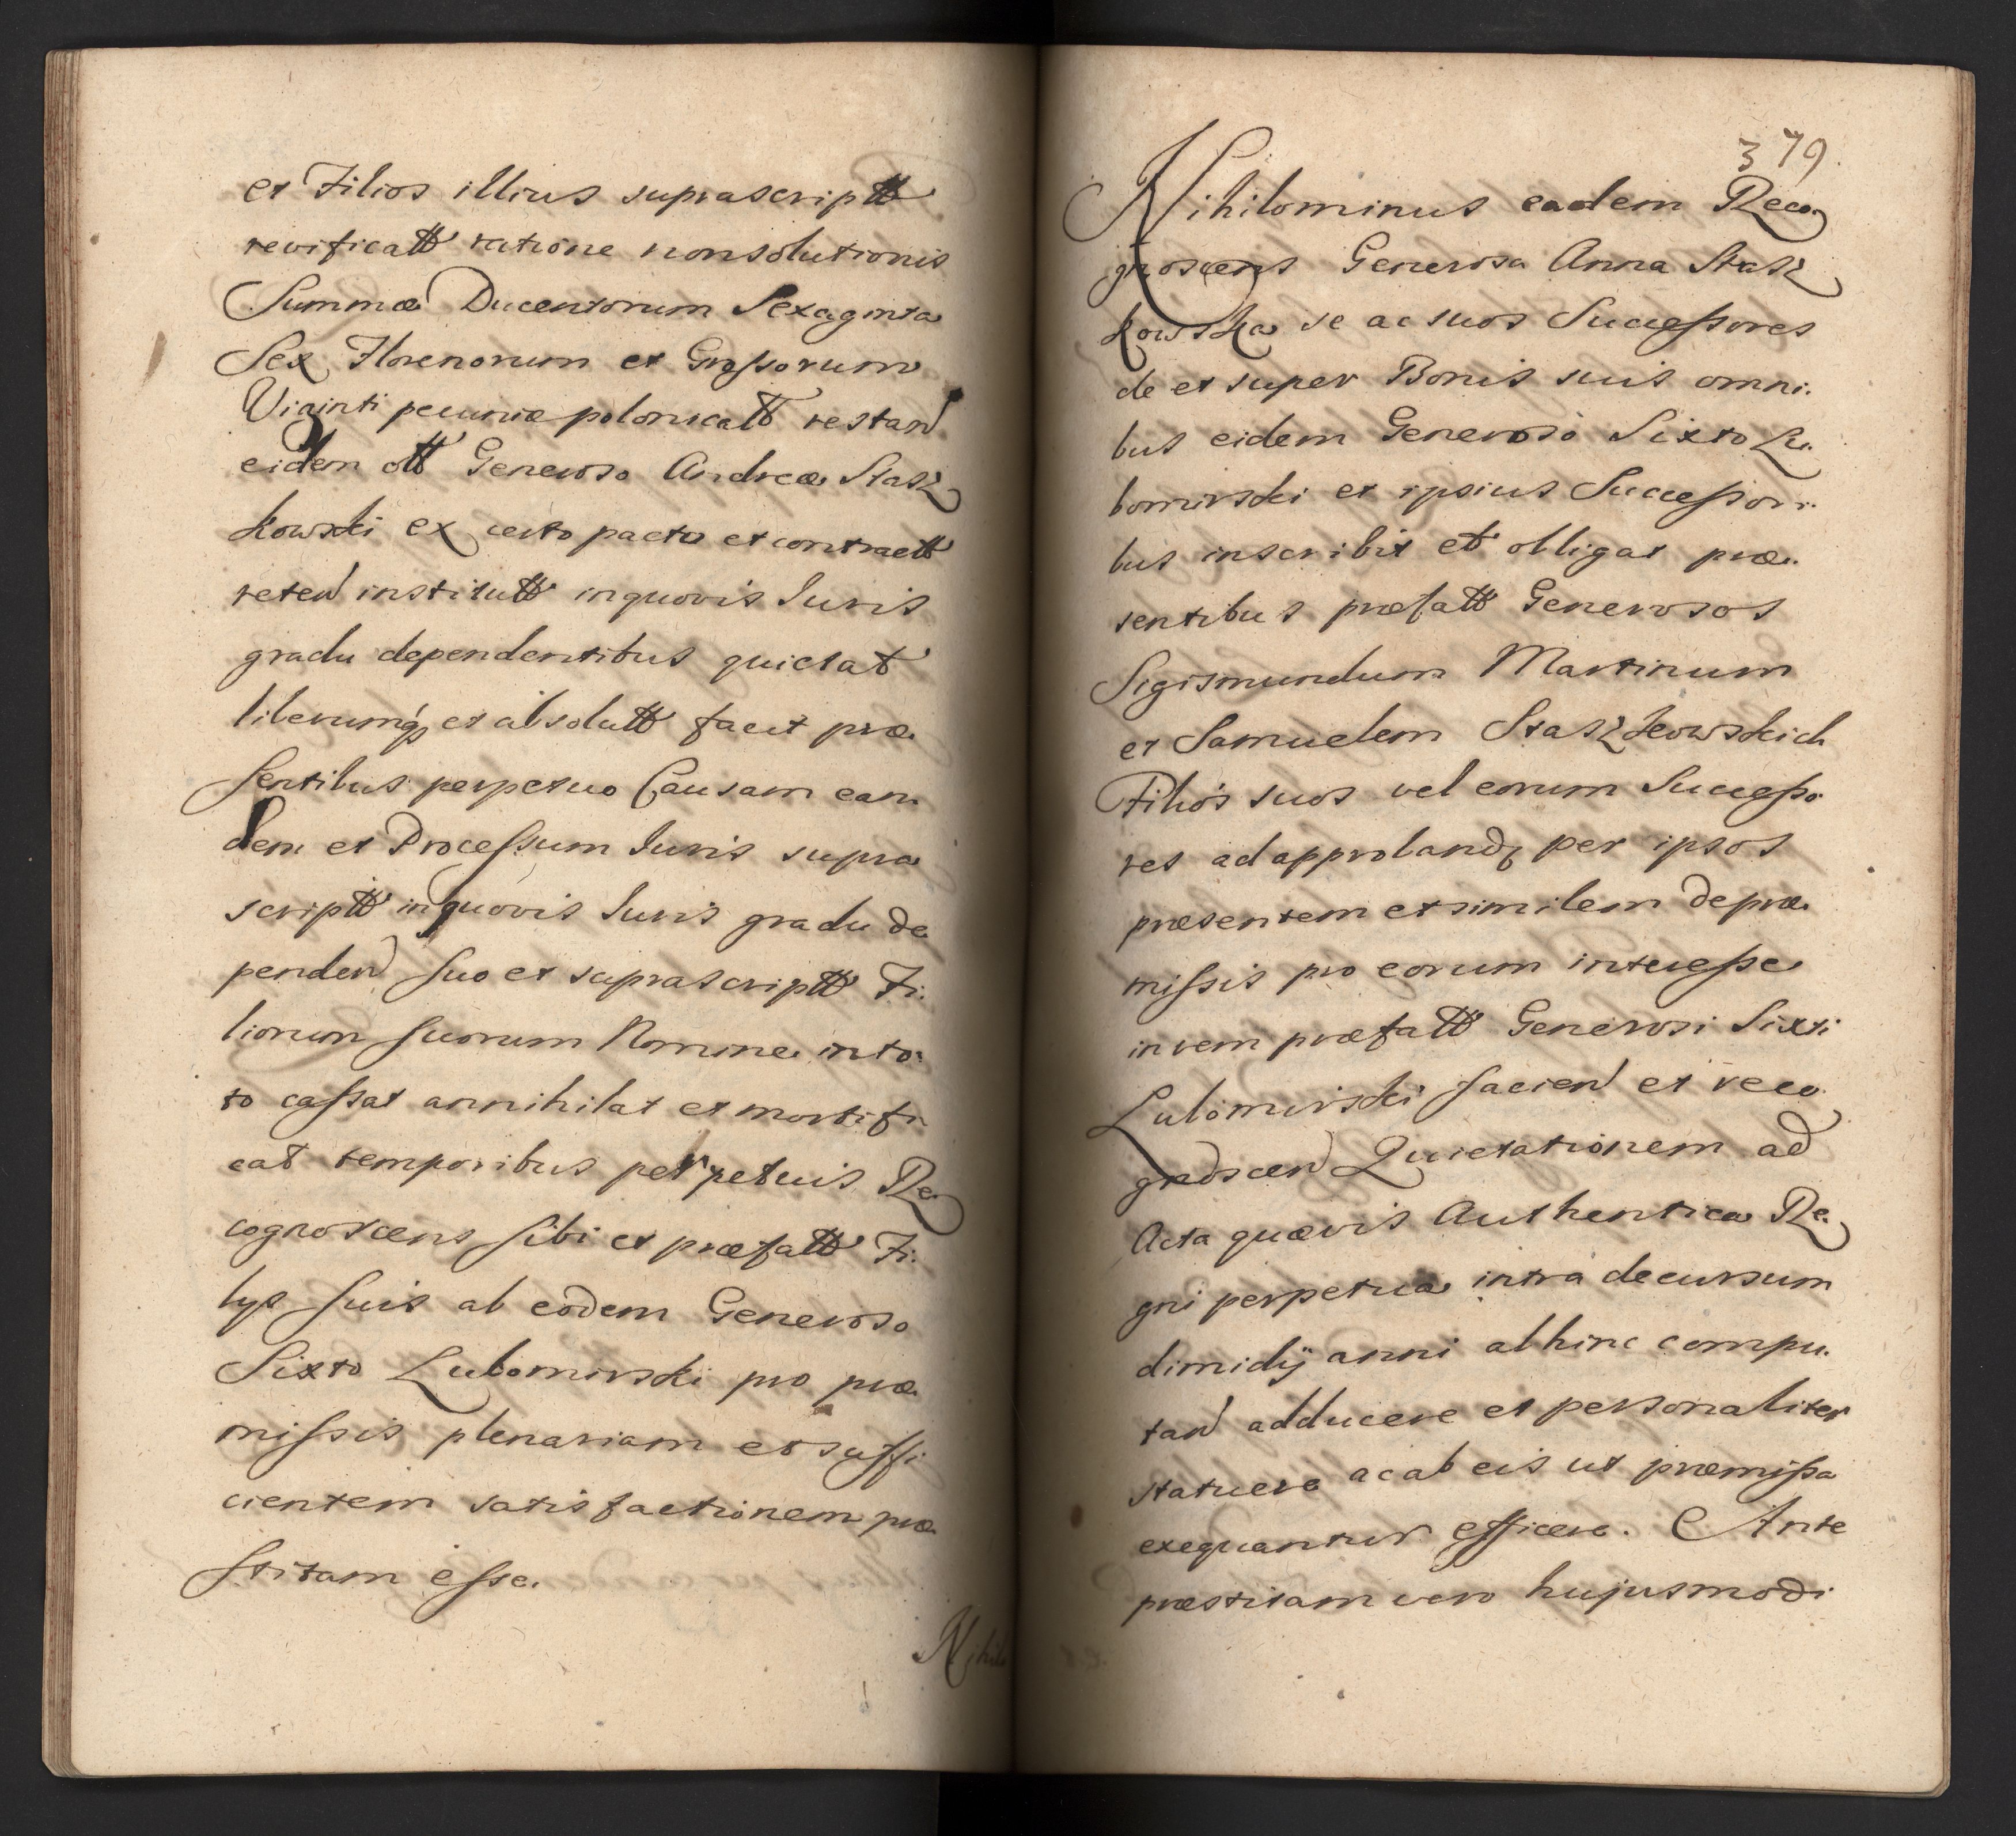 et Filios illius suprascriptt
revificatt ratione nonsolutionis
Summæ Ducentorum Sexaginta
Sex Florenorum et Grossorum
Viginti pecuniæ polonicatt restan
eidem ott Generoso Andreæ Stasz
kowski ex certo pacto et contractt
reten institutt in quovis Iuris
gradu dependentibus quietat
liberumq et absolutt facit præ
sentibus perpetuo Causam ean
dem et Processum Iuris supra
scriptt in quovis Iuris gradu de
penden suo et suprascriptt Fi.
liorum suorum Nomine in to
to cassat annihilat et mortifi
cat temporibus perpetuis Re
cognoscens sibi et præfatt Fi.
lys suis ab eodem Generoso
Sixto Lubomirski pro præ
missis plenariam et suffi
cientem satisfactionem præ
stitam esse.
Nihilo
379.
Nihilominus eadem Reco
gnoscens Generosa Anna Stasz
kowska se ac suos Successores
de et super Bonis suis omni.
bus eidem Generoso Sixto Lu.
bomirski et ipsius Successori.
bus inscribit et obligat præ.
sentibus præfatt Generosos
Sigismundum Martinum
et Samuelem Staszkowskich
Filios suos vel eorum Successo
res ad approband per ipsos
præsentem et similem de præ
missis pro eorum interesse
in rem præfatt Generosi Sixti
Lubomirski facien et reco
gnoscen Quietationem ad
Acta quævis Authentica Re.
gni perpetua intra decursum
dimidij anni abhinc compu.
tan adducere et personaliter
statuere ac ab eis ut præmissa
exequantur efficere. Ante
præstitam vero hujusmodi